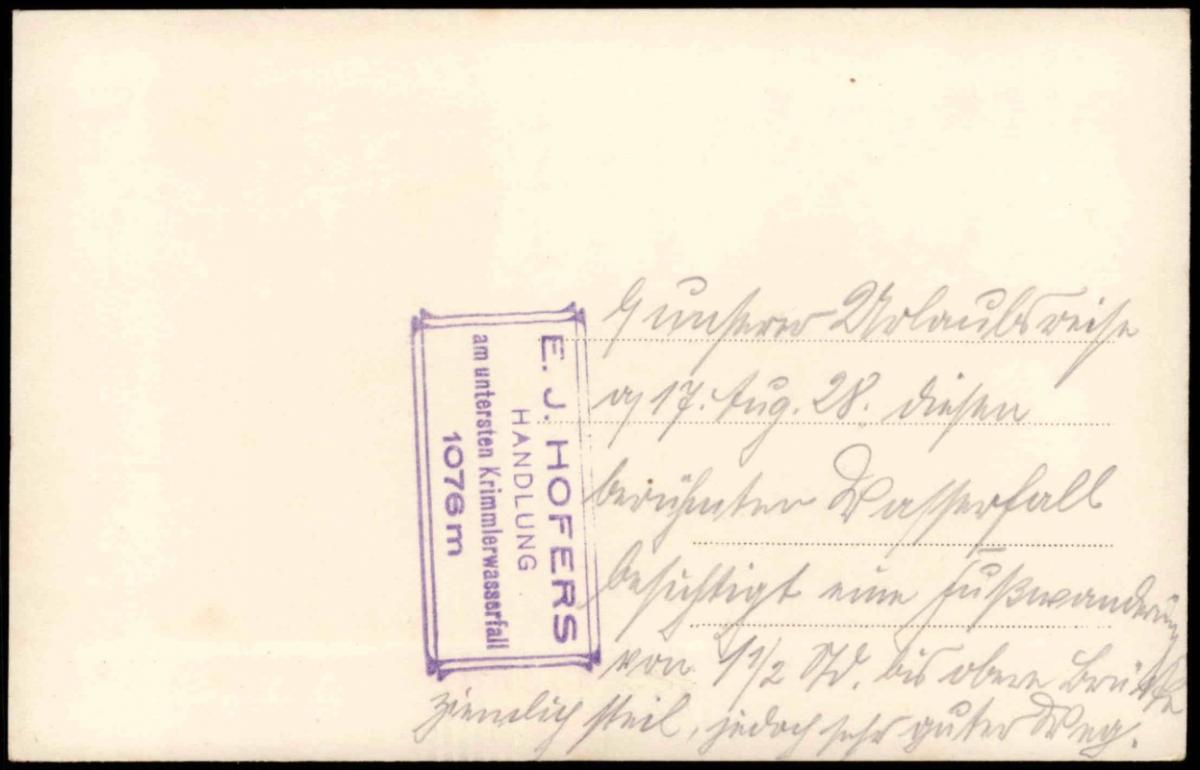 E. J. HOFERS
HANDLUNG
am untersten Krimmlerwasserfall
1076 m
unserer Urlaubsreise
17. Aug. 28. diesen
berühmten Wasserfall
besichtigt eine Fußwanderung
von 1 1/2 Std. bis obere Brücke
ziemlich steil, jedoch sehr guter Weg.